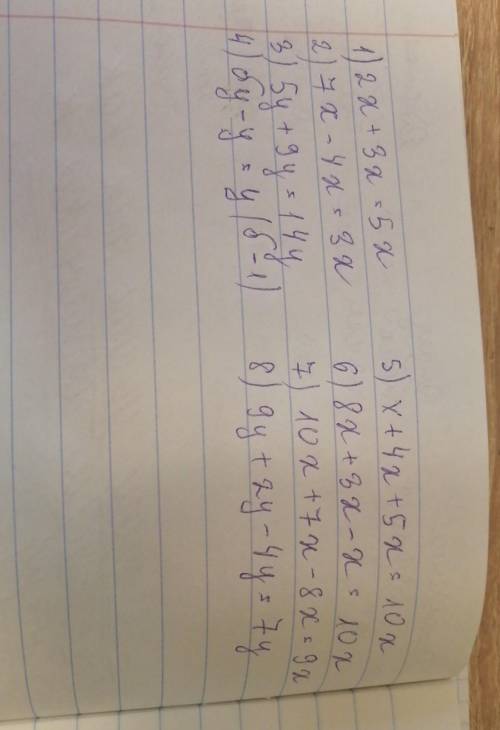 1) 2x + 3x = 5x
2) 7x - 4x = 3x
3) 5y + 9y = 14y
4) бy - y = y(б - 1)
5) x + 4x + 5x = 10x
6) 8x + 3x - x = 10x
7) 10x + 7x - 8x = 9x
8) 9y + 2y - 4y = 7y